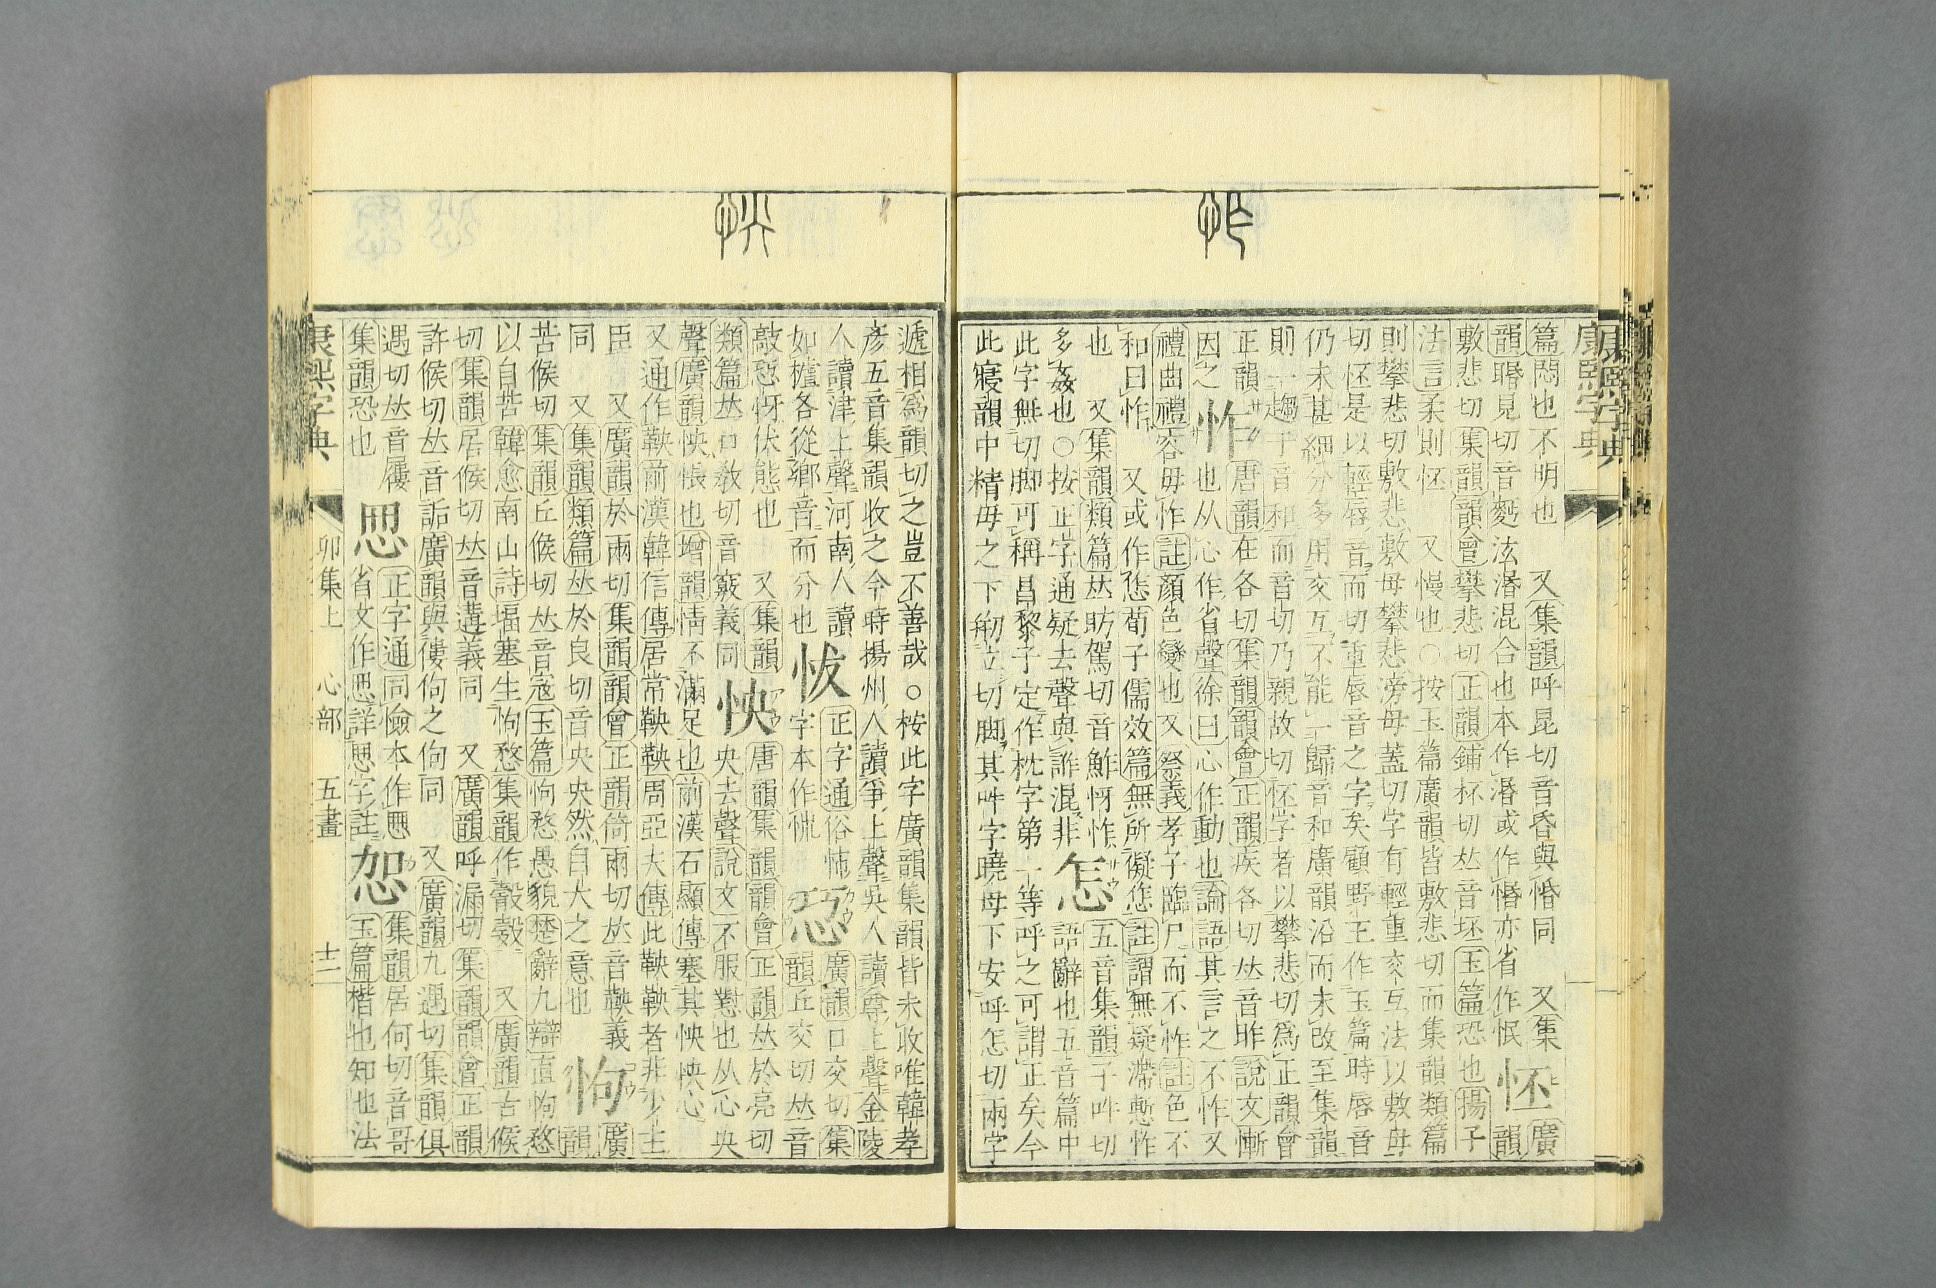 怍
篇悶也不明也 又集韻呼昆切音昏與惛同 又集
韻睧見切音麪泫湣混合也本作湣或作惛亦省作怋
怌
廣
韻
敷悲切集韻韻會攀悲切正韻鋪杯切𠀤音坯玉篇恐也揚子
法言柔則怌 又慢也○按玉篇廣韻皆敷悲切而集韻類篇
則攀悲切敷悲敷母攀悲滂母蓋切字有輕重交互法以敷母
切怌是以輕唇音而切重唇音之字矣顧野王作玉篇時唇音
仍未甚細分多用交互不能歸音和廣韻沿而未改至集韻
則一趨于音和而音切乃親故切怌字者以攀悲切爲正韻會
正韻
因之
怍
唐韻在各切集韻韻會正韻疾各切𠀤音昨說文慚
也从心作省聲徐曰心作動也論語其言之不怍又
禮曲禮容毋怍註顏色變也又祭義孝子臨尸而不怍註色不
和曰怍 又或作㤰荀子儒效篇無所儗㤰註謂無疑滯慙怍
也 又集韻類篇𠀤昉駕切音鮓㤉怍
多姦也○按正字通疑去聲與詐混非
怎
五音集韻子吽切
語辭也五音篇中
此字無切脚可稱昌黎子定作枕字第一等呼之可謂正矣今
此寑韻中精母之下剏立切脚其吽字曉母下安呼怎切兩字
康熙字典
怏
遞相爲韻切之豈不善哉○桉此字廣韻集韻皆未收唯韓孝
彥五音集韻收之今時揚州人讀爭上聲吳人讀尊上聲金陵
人讀津上聲河南人讀
如樝各從鄉音而分也
正字通俗怖
字本作
㤍
廣韻口交切集
韻丘交切𠀤音
敲㤍㤉伏態也 又集韻
類篇𠀤口敎切音竅義同
怏
唐韻集韻韻會正韻𠀤於亮切
央去聲說文不服懟也从心央
聲廣韻怏悵也增韻情不滿足也前漢石顯傳塞其怏怏心
又通作鞅前漢韓信傳居常鞅鞅周亞夫傳此鞅鞅者非少主
臣 又廣韻於兩切集韻韻會正韻倚兩切𠀤音鞅義
同 又集韻類篇𠀤於良切音央央然自大之意也
怐
廣
韻
苦候切集韻丘候切𠀤音寇玉篇怐愗愚貌楚辭九辯直怐愗
以自苦韓愈南山詩堛塞生怐愗集韻作 又廣韻古候
切集韻居候切𠀤音遘義同 又廣韻呼漏切集韻韻會正韻
許候切𠀤音詬廣韻與佝之佝同 又廣韻九遇切集韻俱
遇切𠀤音屨
集韻恐也
思
正字通同憸本作恖
省文作思詳恖字註
集韻居何切音哥
玉篇楷也知也法
康熙字典 卯集上 心部 五畫 十二